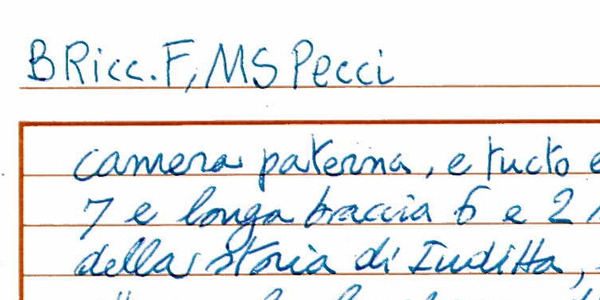 B Ricc. F, MS Pecci
camera paterna, e tucto e
7 e longa braccia 6 e 2
della storia di Iuditta,